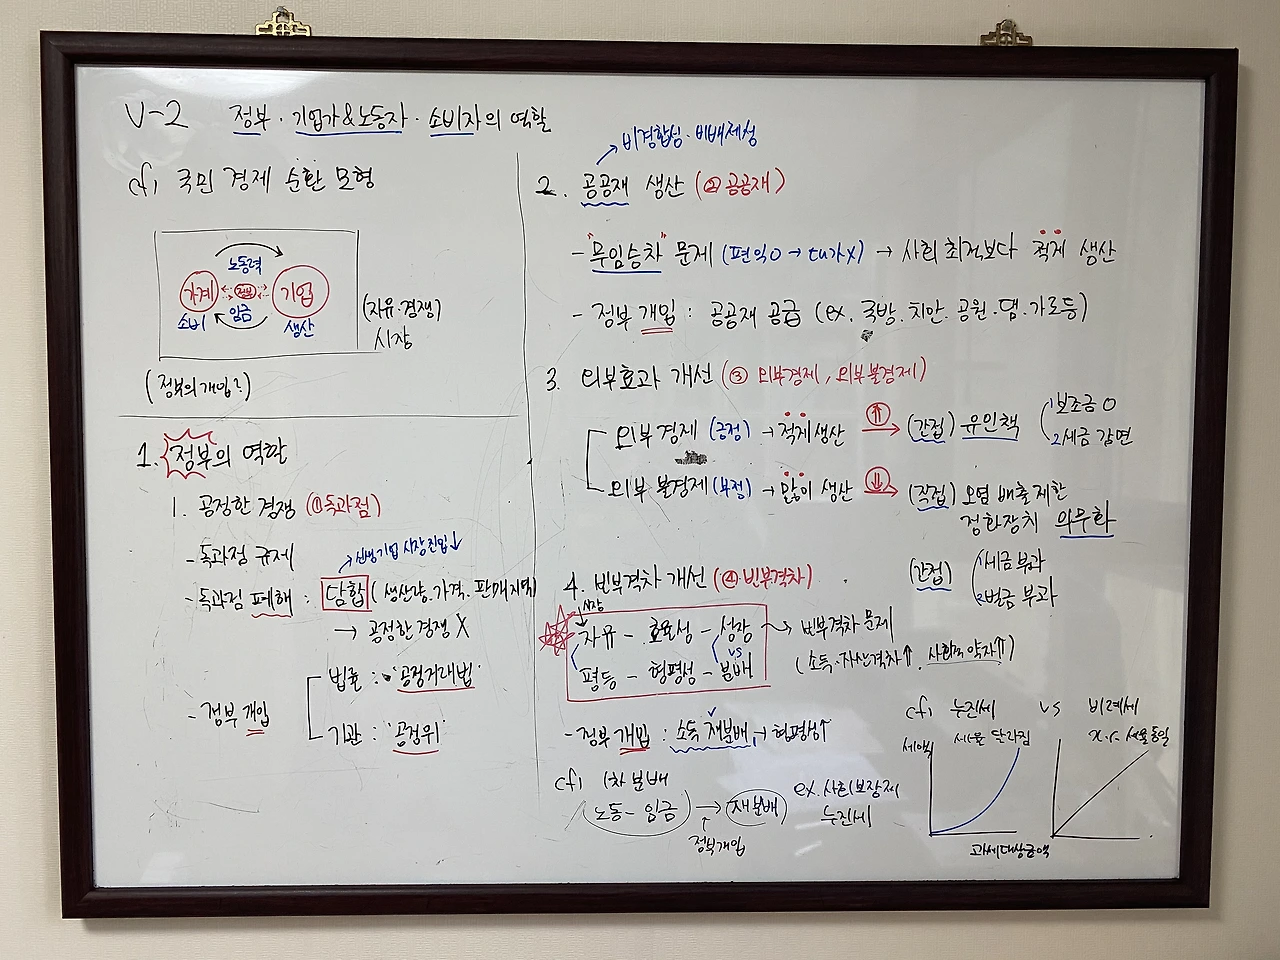 V-2 정부·기업가&노동자·소비자의 역할
cf) 국민 경제 순환 모형
노동력
가계 정부 기업
소비 임금 생산
(자유·경쟁)
시장
(정부의 개입?)
1. 정부의 역할
1. 공정한 경쟁 (①독과점)
- 독과점 규제
→ 신생기업 시장진입↓
- 독과점 폐해 : 담합 (생산량·가격·판매지역)
→ 공정한 경쟁 X
- 정부 개입
법률 : '공정거래법'
기관 : '공정위'
비경합성·비배제성
2. 공공재 생산 (②공공재)
- "무임승차" 문제 (편익O → 대가X) → 사회 최적보다 적게 생산
- 정부 개입 : 공공재 공급 (ex. 국방·치안·공원·댐·가로등)
3. 외부효과 개선 (③ 외부경제, 외부불경제)
외부 경제 (긍정) → 적게 생산 ⇑ → (간접) 유인책
1보조금 O
2세금 감면
외부 불경제 (부정) → 많이 생산 ⇓ → (직접) 오염 배출 제한
정화장치 의무화
(간접)
1세금 부과
2벌금 부과
4. 빈부격차 개선 (④빈부격차)
시장
자유 - 효율성 - 성장 → 빈부격차 문제
vs
평등 - 형평성 - 분배
(소득·자산격차↑, 사회적 약자↑)
- 정부 개입 : 소득 재분배 → 형평성↑
cf) 1차 분배
노동 - 임금 → 재분배
정부개입
ex. 사회보장제
누진세
cf) 누진세 vs 비례세
세액 세율 달라짐
세율 동일
과세대상금액